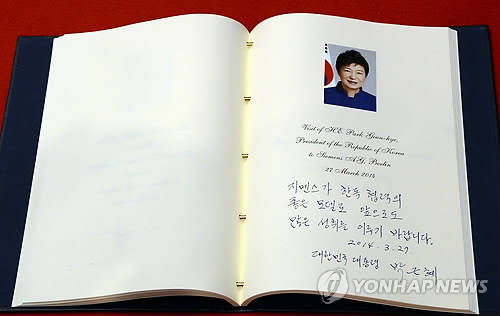 Visit of H.E. Park Geun-hye,
President of the Republic of Korea
to Siemens AG, Berlin
27 March 2014
지멘스가 한독 협력의
좋은 모델로 앞으로도
많은 성취를 이루기 바랍니다.
2014. 3. 27.
대한민국 대통령 박근혜
YONHAPNEWS